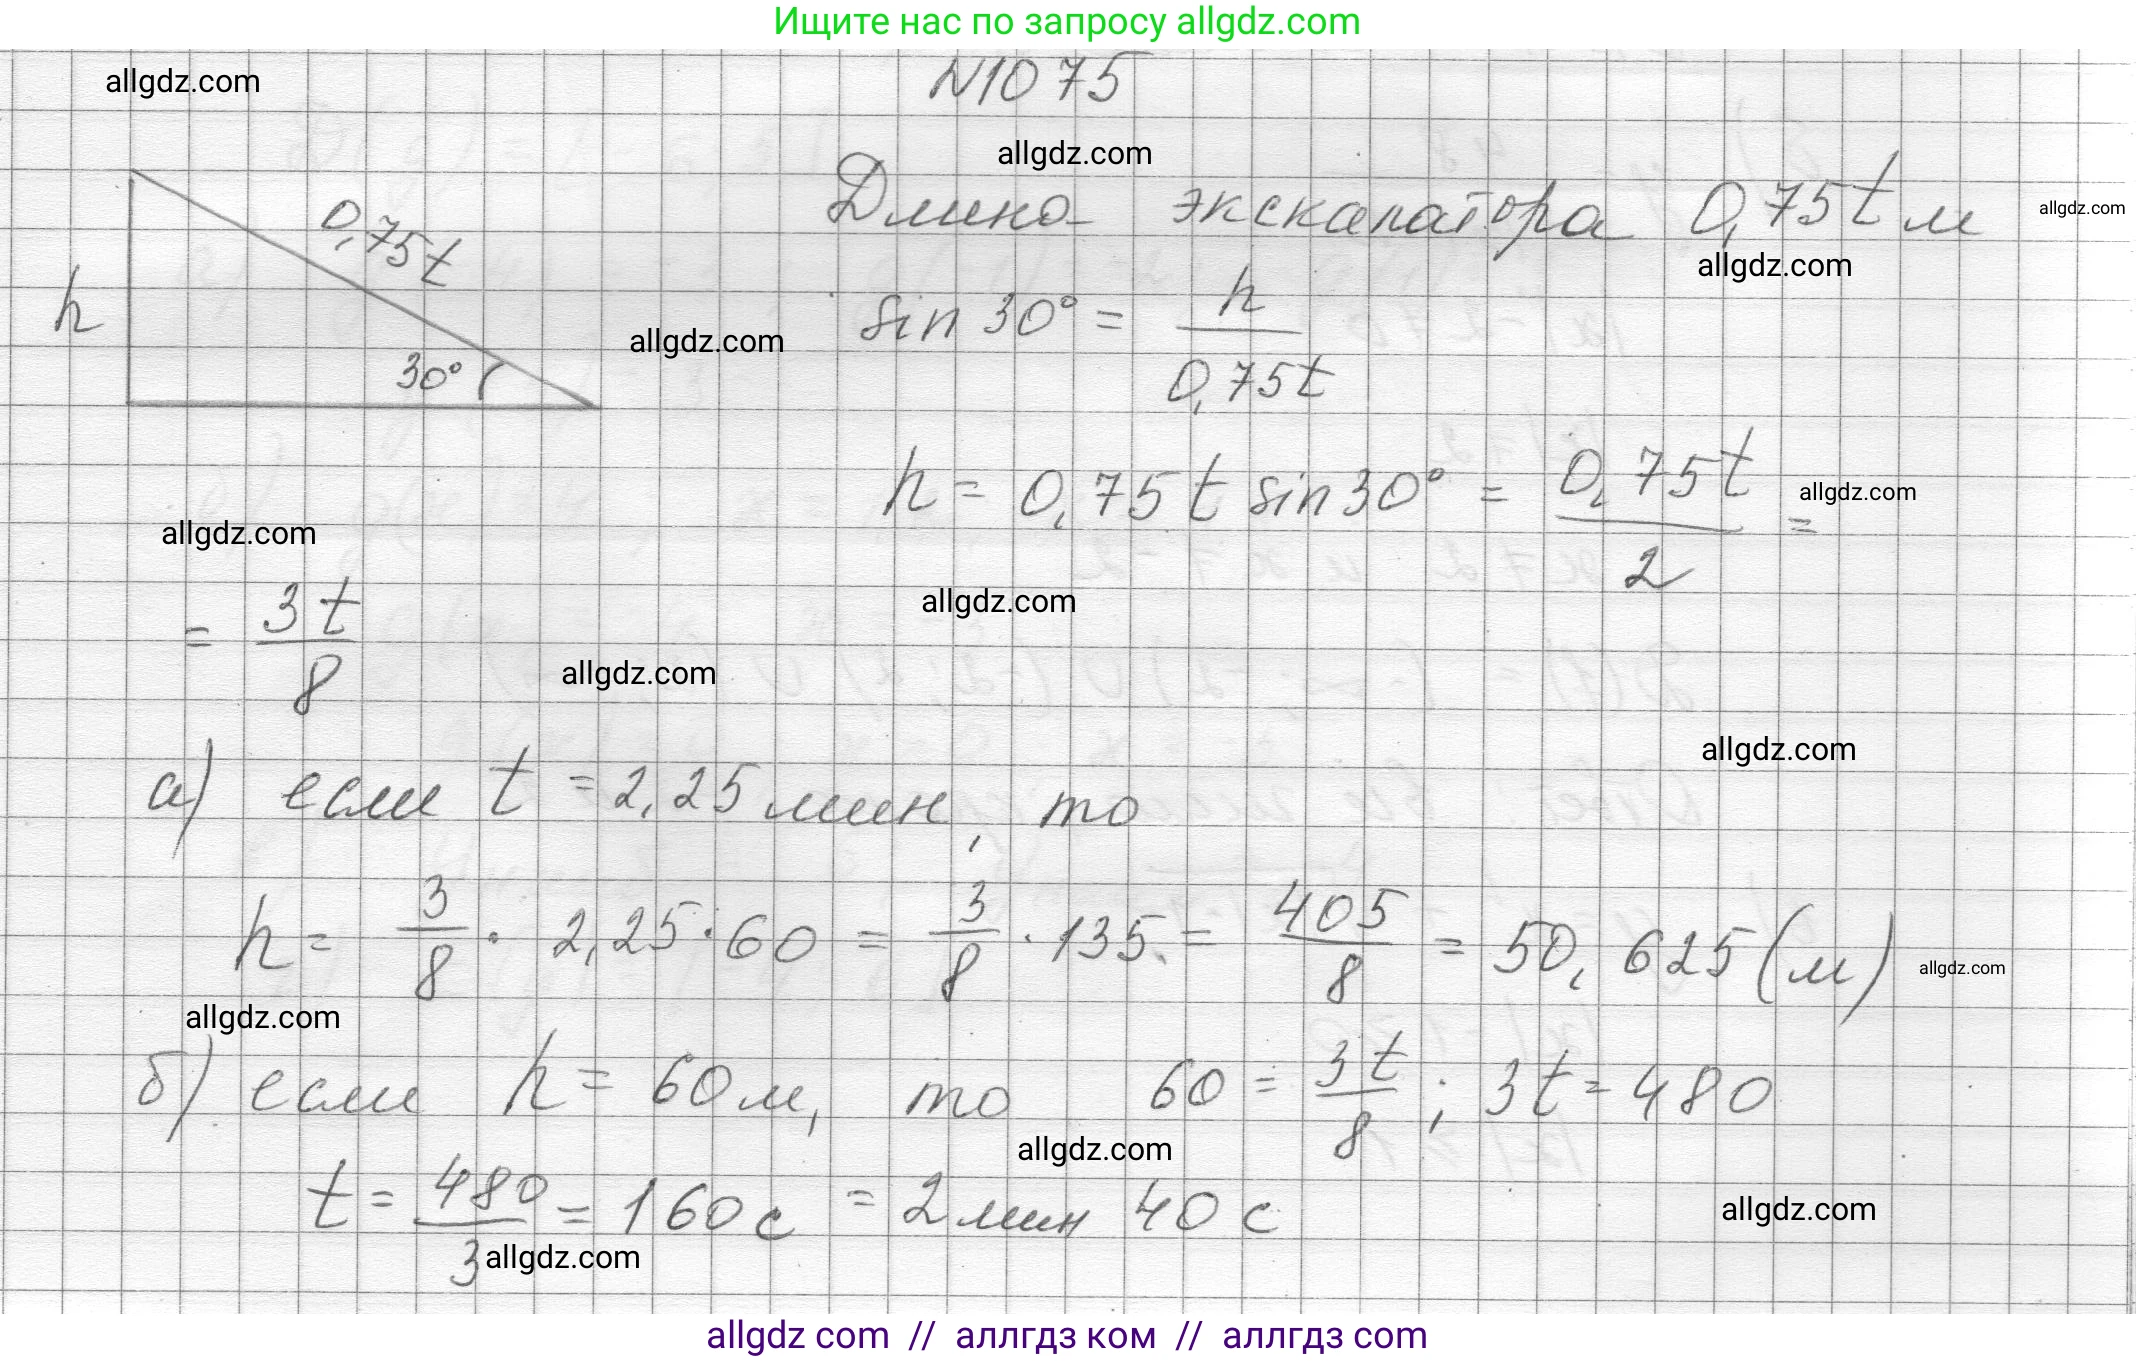 Ищите нас по запросу allgdz.com
allgdz.com
N1075
allgdz.com
Длина эскалатора 0,75t м
allgdz.com
allgdz.com
0,75t
h
30°
allgdz.com
sin 30° = h / 0,75t
h = 0,75 t sin 30° = 0,75t / 2 =
allgdz.com
allgdz.com
allgdz.com
= 3t / 8
allgdz.com
allgdz.com
а) если t = 2,25 мин, то
h = 3/8 · 2,25 · 60 = 3/8 · 135 = 405/8 = 50,625 (м)
allgdz.com
allgdz.com
б) если h = 60 м, то 60 = 3t/8 ; 3t = 480
allgdz.com
t = 480/3 = 160 с = 2 мин 40 с
allgdz.com
allgdz.com
allgdz com // аллгдз ком // аллгдз com